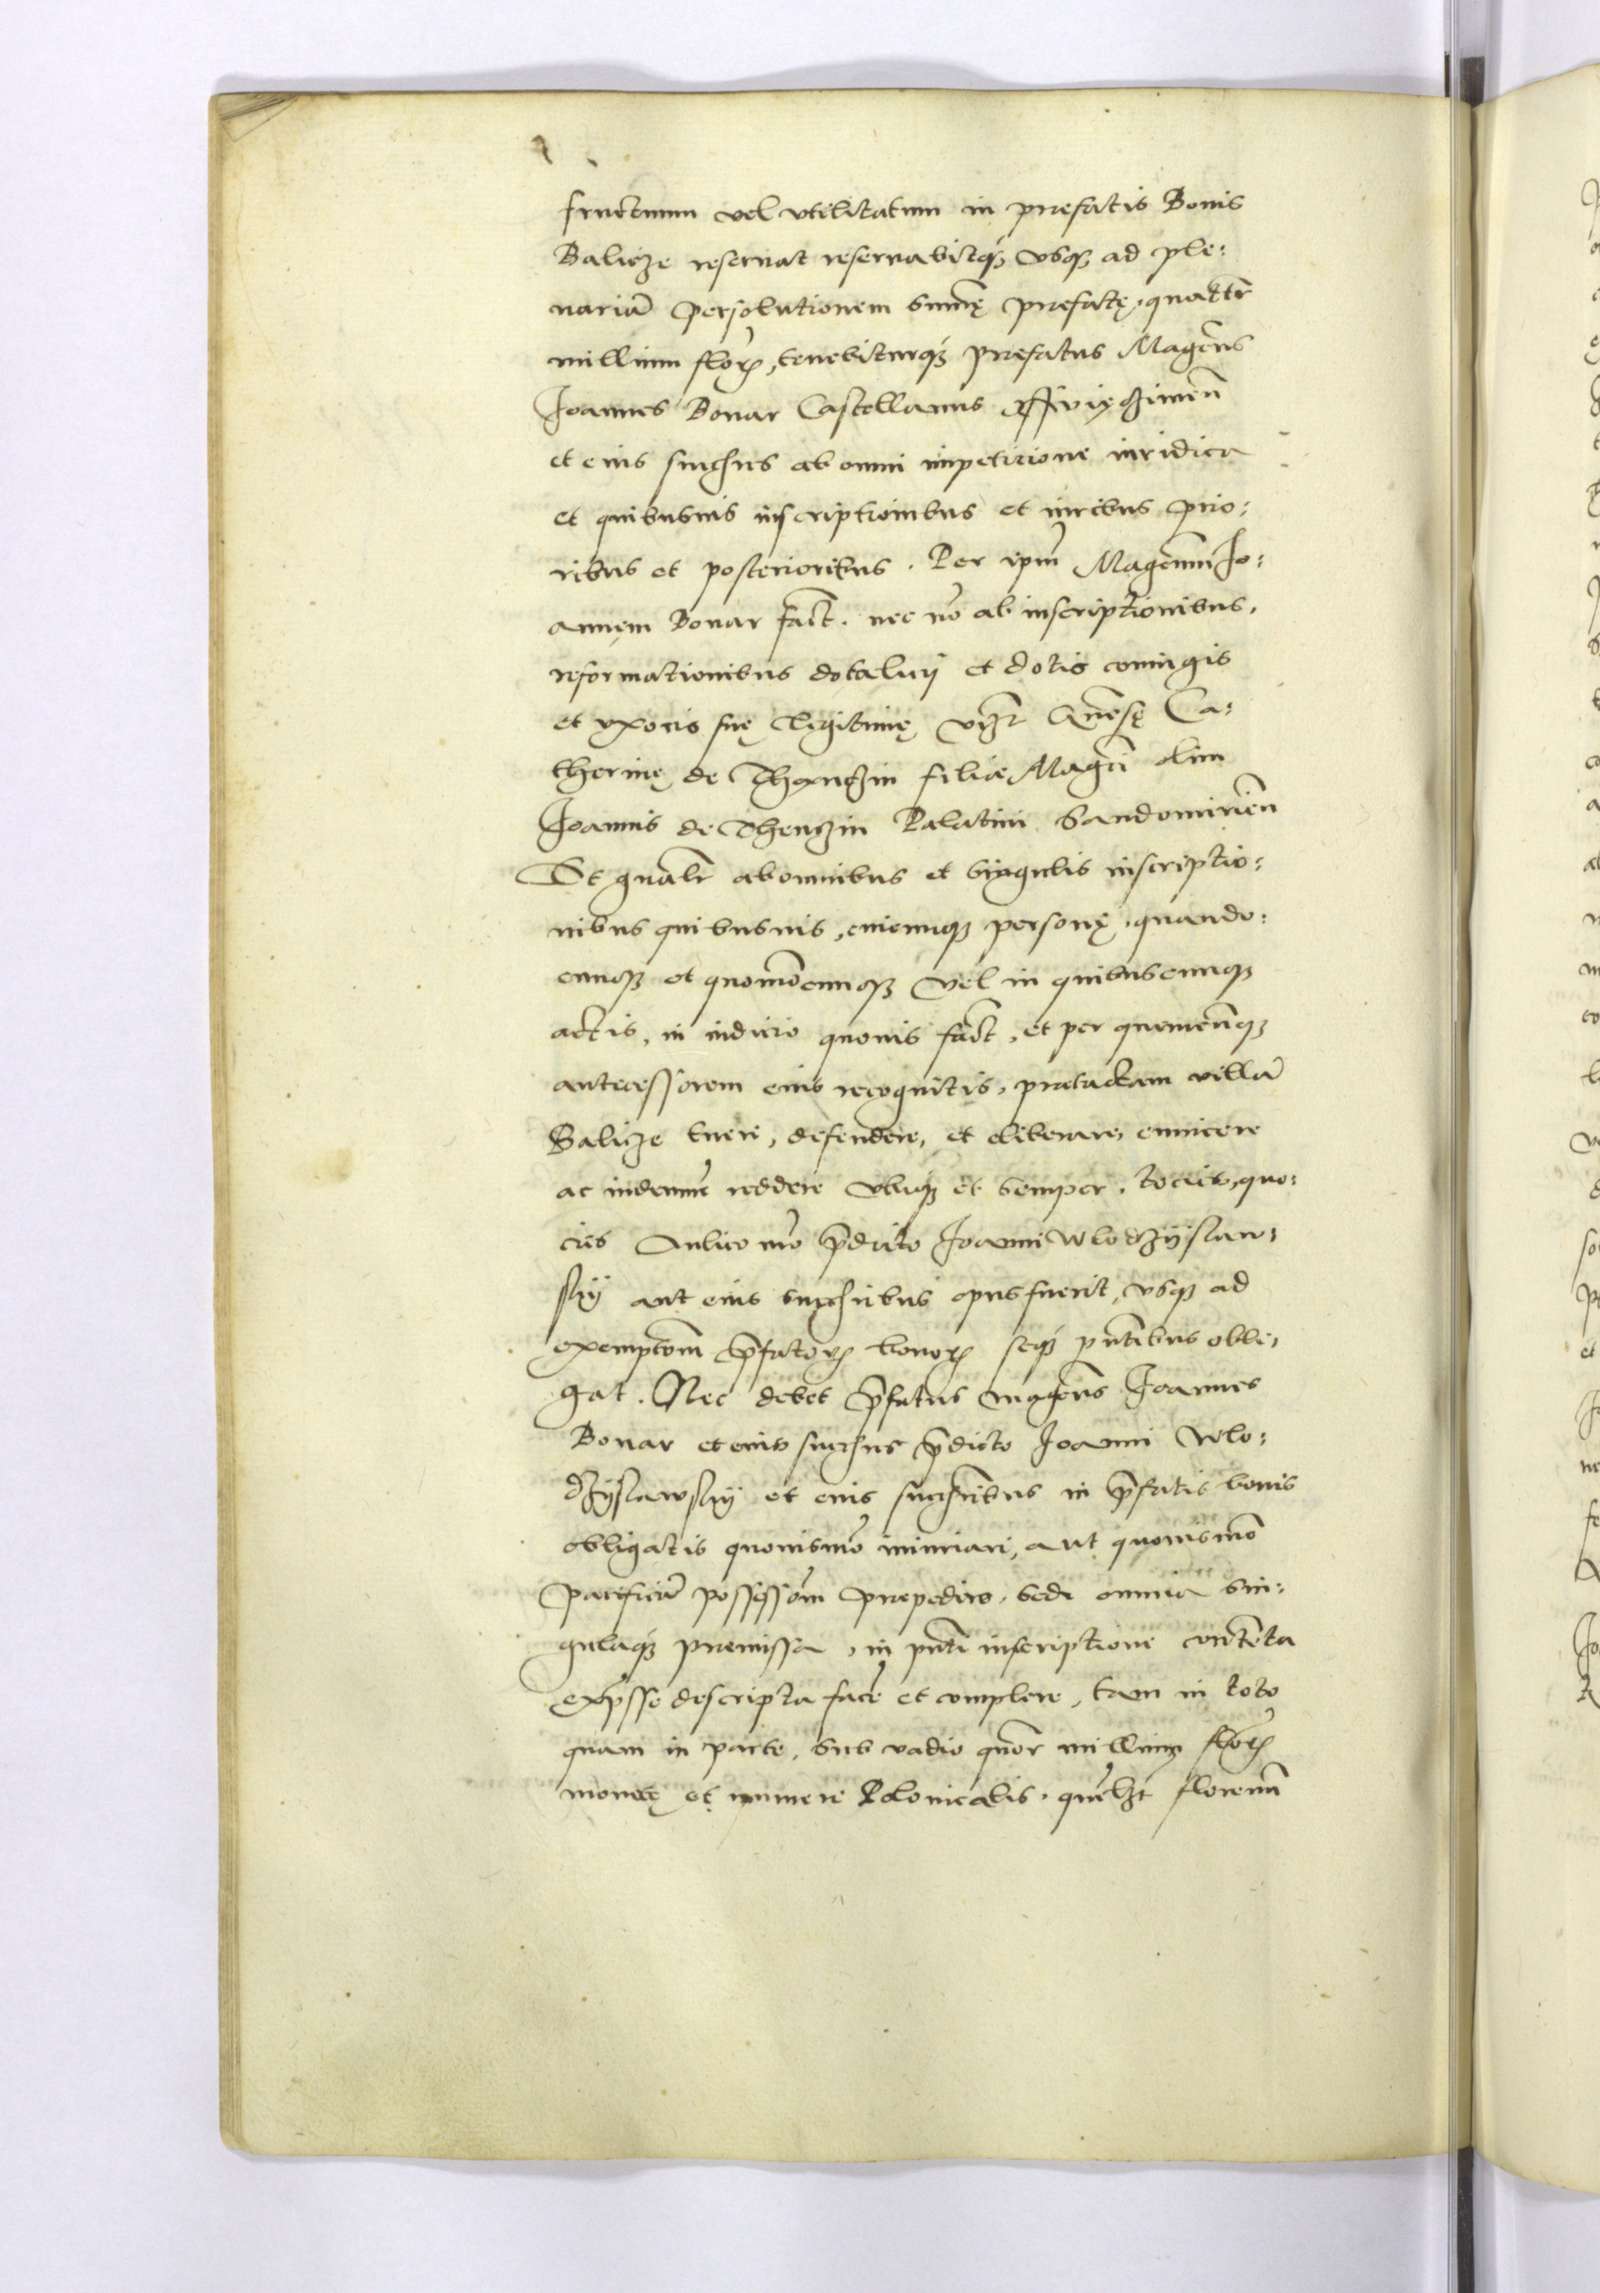 fructuum vel vtilitatum in prefatis Bonis
Balicze reseruat reseruabitqȝ vsqȝ ad ple:
nariā persolutionem sūmę prefatę, quattr̄
millium florꝝ, tenebiturqȝ prefatus Magcūs
Joannes Bonar Castellanus Osswiączimeñ
et eius successs ab omni impeticione iuridica
et quibusuis inscriptioībus et iuribus prio:
ribus et posterioribus. Per ipm̄ Magcum̄ Jo:
annem Bonar fact̄. nec nō ab inscriptionibus,
reformationibus dotalicij et dotis coniugis
et vxoris suę legitimę vȝ Gn̄osę Ca:
therinę de Thanczin filiæ Magcī olim
Joannis de Thenczin Palatini Sandomirieñ
Et gn̄alr̄ ab omnibus et singulis inscriptio:
nibus quibusuis, cuicunqȝ personę, quando:
cunqȝ et quomōcunqȝ vel in quibuscunqȝ
actis, in iudicio quouis fact̄, et per quemcūqȝ
antecessorem eius recognitis, pretactam villā
Balicze tueri, defendere, et eliberare, euincere
ac indemnē reddere vbiqȝ et semper, tocies, quo:
cies Aulico nr̄o p̄dicto Joanni Wlodzÿslaw:
skÿ aut eius successribus opus fuerit, vsqȝ ad
exempcōm p̄fatorꝝ bonorꝝ seqȝ pn̄tibus obli:
gat. Nec debet p̄fatus Magcūs Joannes
Bonar et eius successs p̄dicto Joanni Wlo:
dzÿslawskÿ et eius successribus in p̄fatis bonis
obligatis quouismō iniuriari, aut quouismō
pacificā possessiōm prepedire, sed omnia sin:
gulaqȝ premissa, in pn̄ti inscriptione contēta
exp̄sse descripta facē et complere, tam in toto
quam in parte, sub vadio qūor millium florꝝ
monetę et numeri Polonicalis, quēlȝt florenū